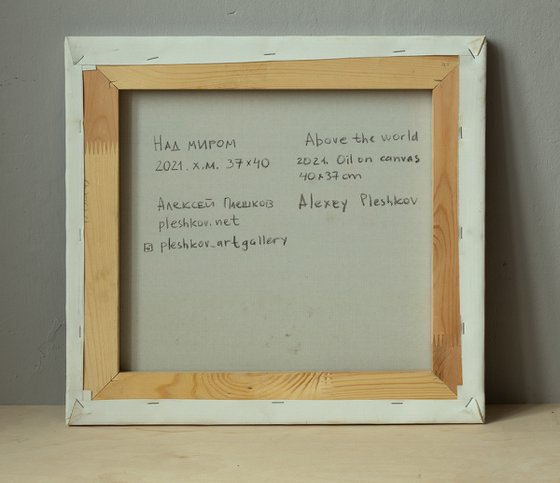 Над миром
2021. х.м. 37×40
Алексей Плешков
pleshkov.net
pleshkov_artgallery
Above the world
2021. Oil on canvas
40×37 cm
Alexey Pleshkov